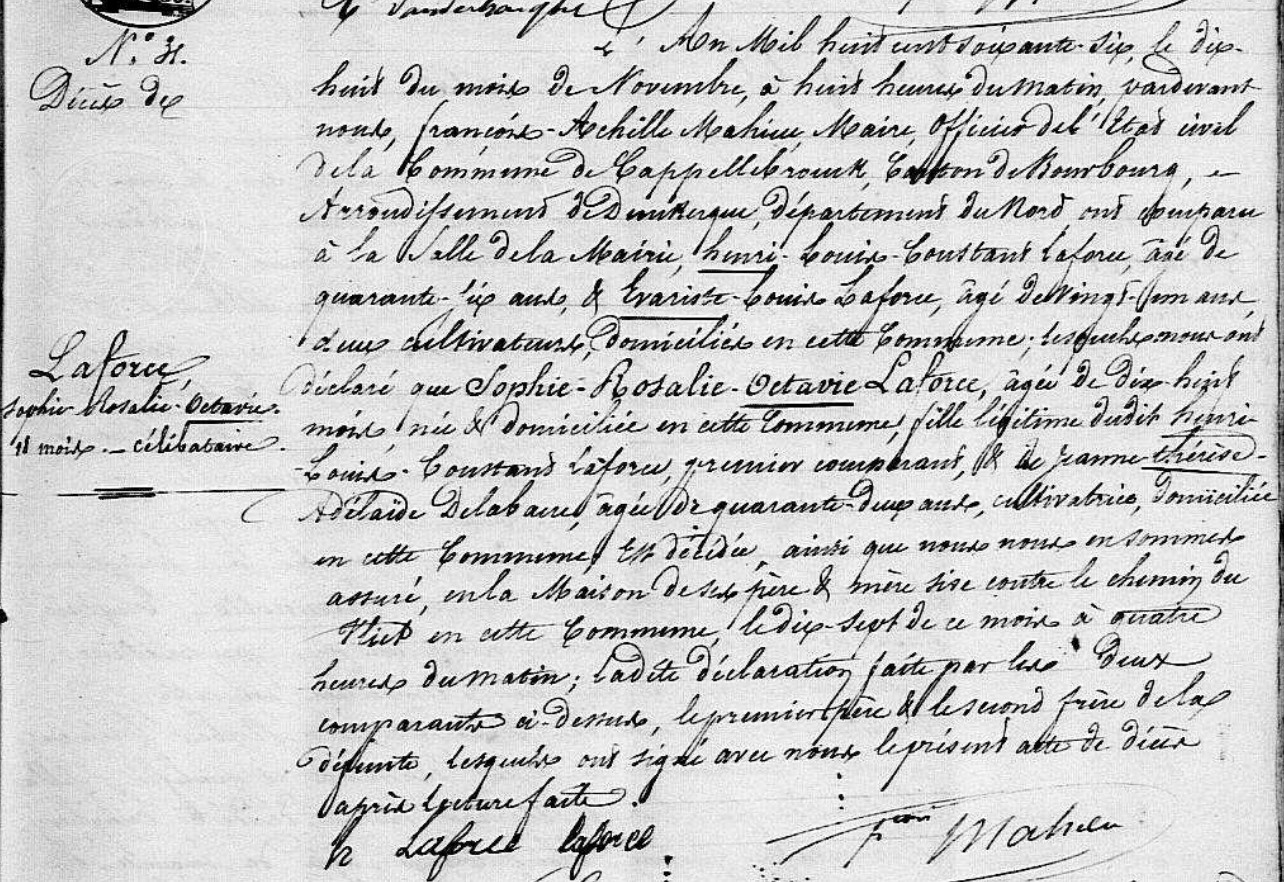 N.° 31.
Décès de
Laforce,
Sophie-Rosalie-Octavie.
18 mois. — célibataire.
L'An Mil huit cent soixante-six, le dix-
huit du mois de Novembre, à huit heures du matin, pardevant
nous, françois-Achille Mahieu, Maire, Officier de l'Etat civil
de la Commune de Cappellebrouck, Canton de Bourbourg, -
Arrondissement de Dunkerque, département du Nord, ont comparu
à la Salle de la Mairie, henri-Louis-Constant Laforce, âgé de
quarante-six ans, & Evariste-Louis Laforce, âgé de vingt-un ans,
deux cultivateurs, domiciliés en cette Commune; lesquels nous ont
déclaré que Sophie-Rosalie-Octavie Laforce, âgée de dix-huit
mois, née & domiciliée en cette Commune, fille légitime dudit henri-
-Louis-Constant Laforce, premier comparant, & de Jeanne-thérèse-
Adélaïde Delabaere, âgée de quarante-deux ans, cultivatrice, domiciliée
en cette Commune, Est décédée, ainsi que nous nous en sommes
assuré, en la Maison de ses père & mère sise contre le chemin du
Vliet en cette Commune, le dix-sept de ce mois à quatre
heures du matin; ladite déclaration faite par les deux
comparants ci-dessus, le premier père & le second frère de la
défunte, lesquels ont signé avec nous le présent acte de décès
après lecture faite.
h Laforce laforce fcois Mahieu